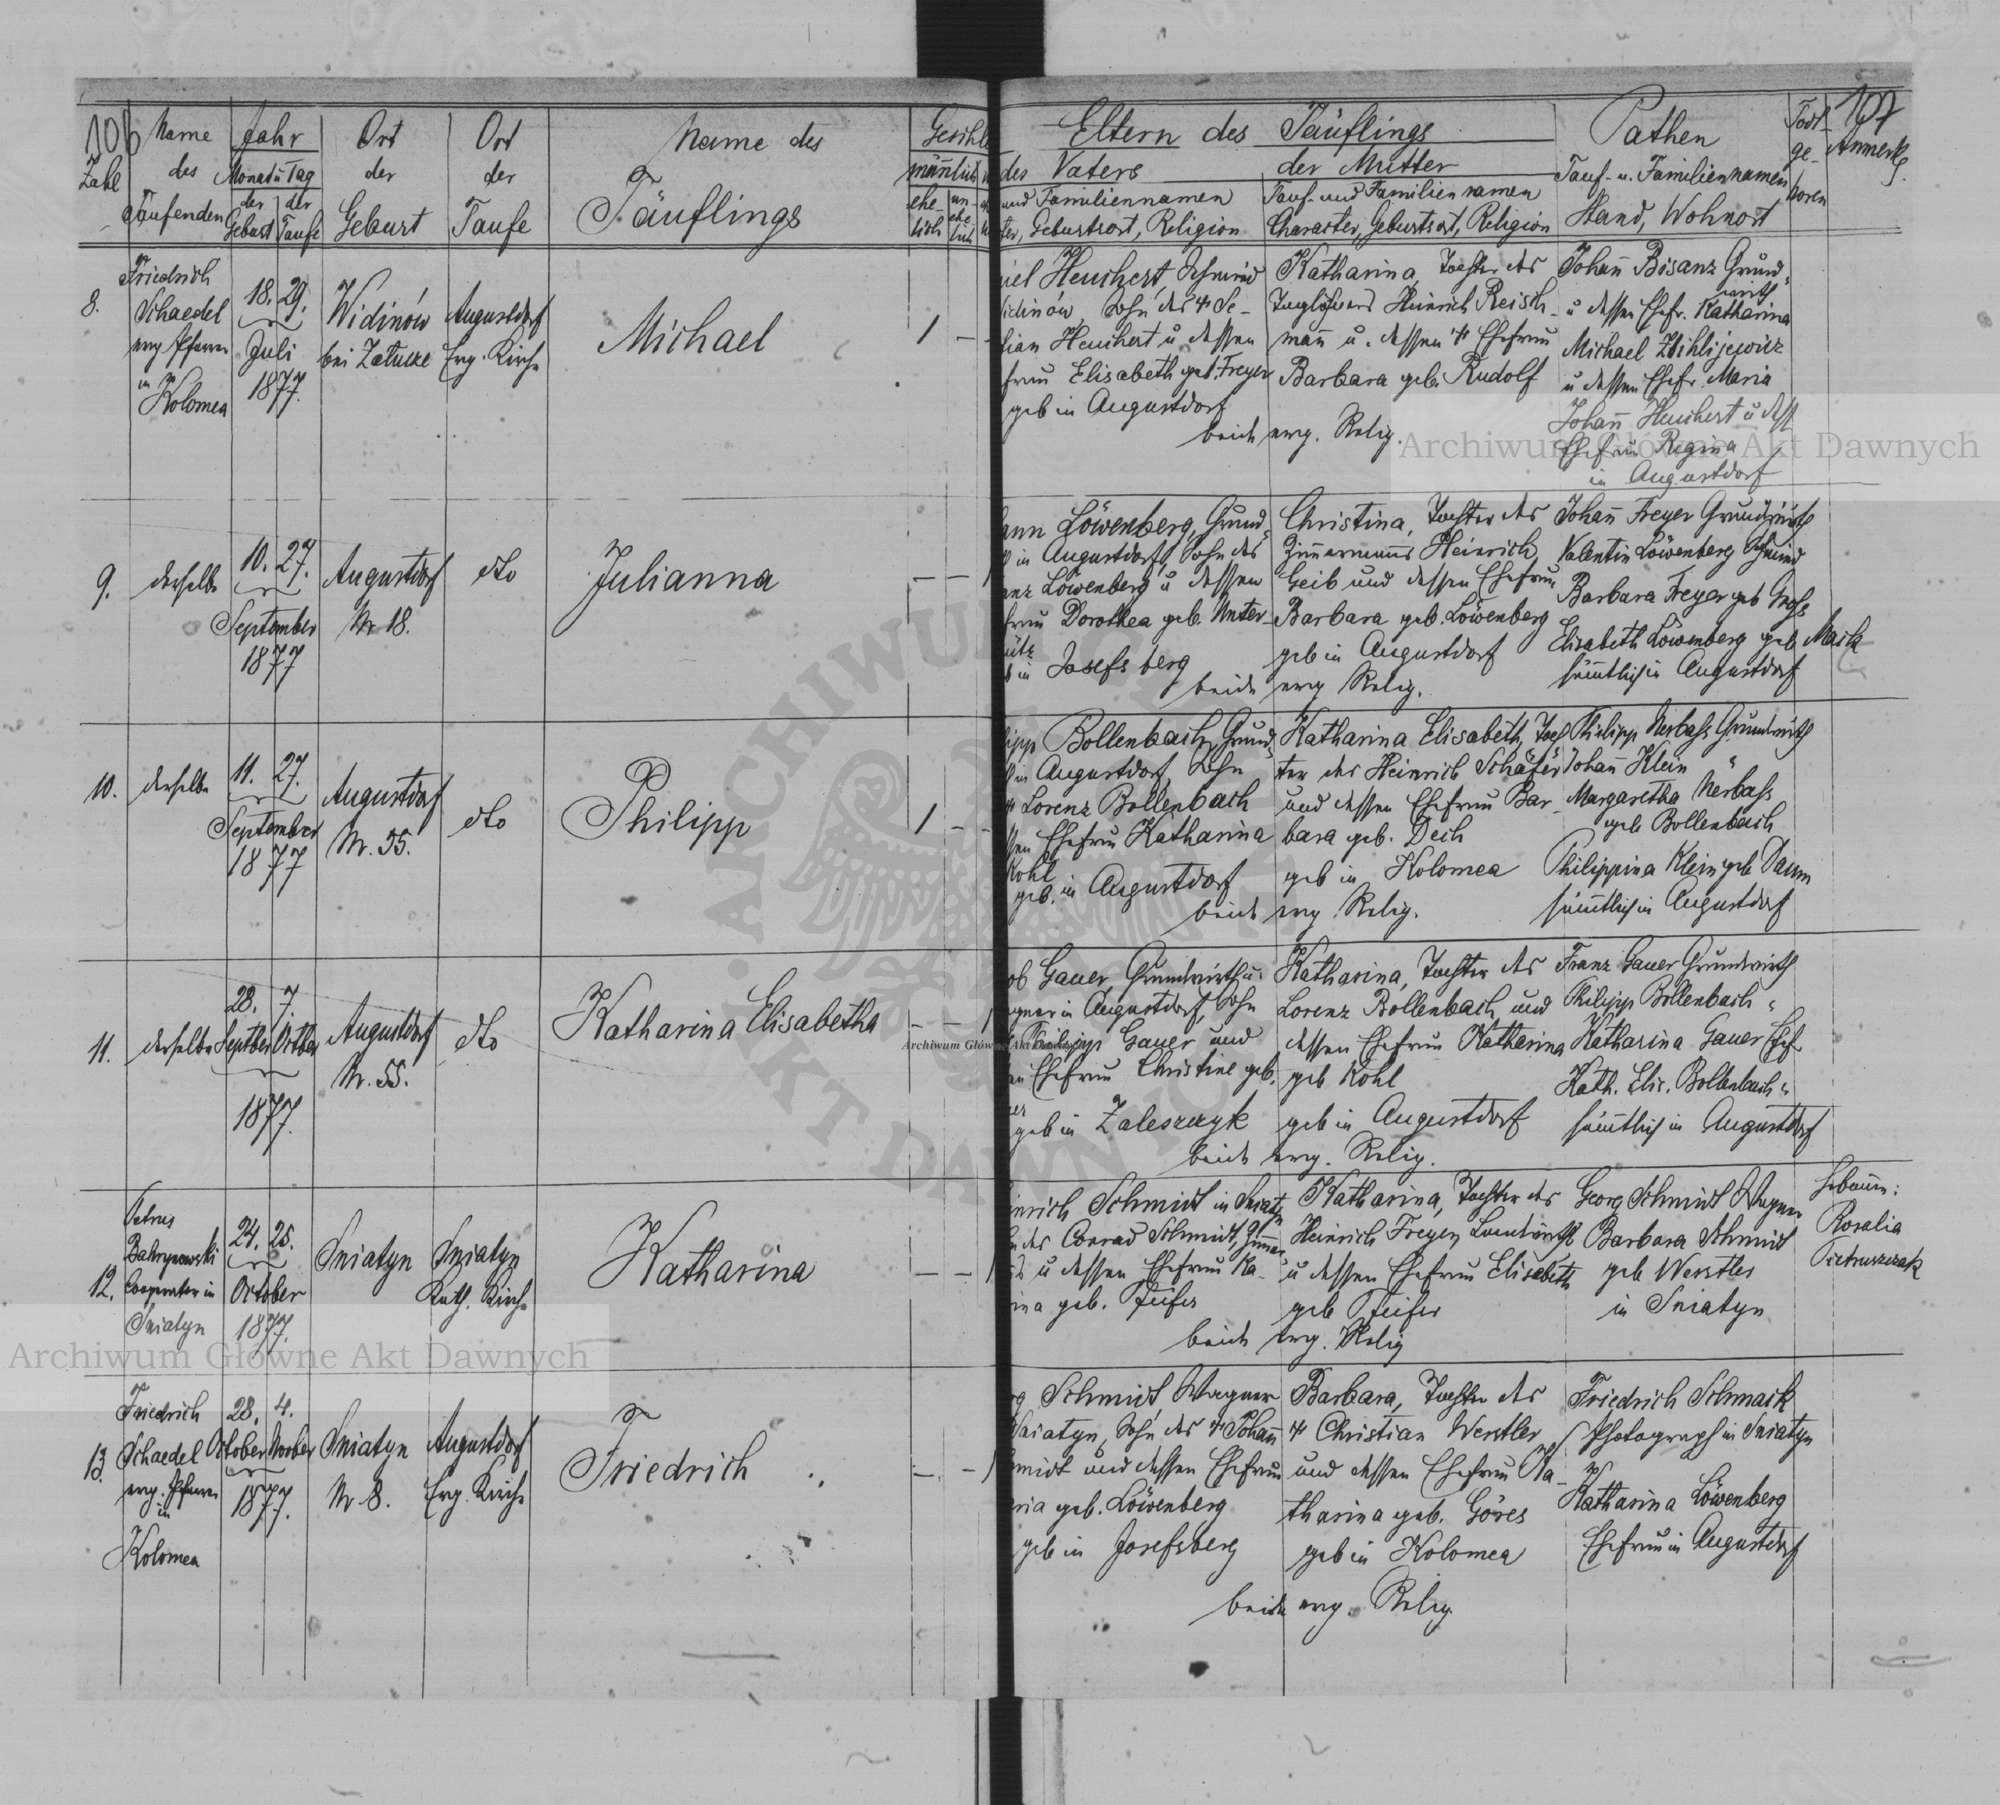 106
Zahl
Name
des
Taufenden
Jahr
Monat u Tag
der
Geburt
der
Taufe
Ort
der
Geburt
Ort
der
Taufe
Name des
Täuflings
Geschle
männlich
ehe-
lich
un-
ehe
lich
Eltern des Täuflings
des Vaters
und Familiennamen
ter, Geburtsort, Religion
der Mutter
Tauf- und Familiennamen
Character, Geburtsort, Religion
Pathen
Tauf- u. Familiennamen
Stand, Wohnort
Todt-
ge-
boren
107
Anmerkg.
8.
Friedrich
Schaedel
evg Pfarrer
in
Kolomea
18. 29.
Juli
1877.
Widinów
bei Załucze
Augustdorf
Evg. Kirche
Michael
1 -
iel Heuchert, Schmied
idinów, Sohn des + Se-
tian Heuchert u dessen
frau Elisabeth geb. Freyer
geb in Augustdorf
Katharina, Tochter des
Taglöhners Heinrich Reisch-
mann u. dessen + Ehefrau
Barbara geb. Rudolf
beide evg. Relig.
Johann Bisanz Grund-
wirth
u dessen Ehefr. Katharina
Michael
u dessen Ehefr. Maria
Johann Heuchert u dess
Ehefrau Regina
in Augustdorf
9.
derselbe
10. 27.
September
1877
Augustdorf
Nr 18.
dto
Julianna
- - 1
ann Löwenberg, Grund-
in Augustdorf, Sohn des
anz Löwenberg u dessen
frau Dorothea geb. Unter-
ütz
in Josefsberg
Christina, Tochter des
Zimmermanns Heinrich
Geib und dessen Ehefrau
Barbara geb. Löwenberg
geb in Augustdorf
beide evg Relig.
Johann Freyer Grundwirth
Valentin Löwenberg Schmied
Barbara Freyer geb Gross
Elisabeth Löwenberg geb Mark
sämtlich in Augustdorf
10.
derselbe
11. 27.
September
1877
Augustdorf
Nr. 35.
dto
Philipp
1 - -
lipp Bollenbach, Grund-
in Augustdorf, Sohn
+ Lorenz Bollenbach
ssen Ehefrau Katharina
Kohl
geb. in Augustdorf
Katharina Elisabeth, Toch
ter des Heinrich Schäfer
und dessen Ehefrau Bar-
bara geb. Deih
geb in Kolomea
beide evg. Relig.
Philipp Nerbass Grundwirth
Johann Klein "
Margaretha Nerbass
geb Bollenbach
Philippina Klein geb Daum
sämtlich in Augustdorf
11.
derselbe
28. 7.
Septber Octber
1877.
Augustdorf
Nr. 55.
dto
Katharina Elisabetha
- - 1
ob Gauer, Grundwirth u.
gner in Augustdorf, Sohn
Philipp Gauer und
en Ehefrau Christine geb.
geb in Zaleszczyk
Katharina, Tochter des
Lorenz Bollenbach und
dessen Ehefrau Katharina
geb Kohl
geb in Augustdorf
beide evg. Relig.
Franz Gauer Grundwirth
Philipp Bollenbach "
Katharina Gauer Ehef
Kath. Elis. Bollenbach "
sämtlich in Augustdorf
12.
Petrus
Cooperator in
Sniatyn
24. 25.
October
1877.
Sniatyn
Sniatyn
Kath. Kirche
Katharina
- - 1
inrich Schmidt in Sniatyn
des Conrad Schmidt, Zimmer
u dessen Ehefrau Ka-
ina geb. Pfeifer
Katharina, Tochter des
Heinrich Freyer, Landwirths
u dessen Ehefrau Elisabeth
geb Pfeifer
beide evg. Relig
Georg Schmidt Wagner
Barbara Schmidt
geb Werstler
in Sniatyn
Hebamme:
Rosalia
Pietruszczak
13.
Friedrich
Schaedel
evg. Pfarrer
in
Kolomea
28. 4.
October Novber
1877.
Sniatyn
Nr 8.
Augustdorf
Evg. Kirche
Friedrich
- - 1
rg Schmidt, Wagner
Sniatyn, Sohn des + Johann
midt und dessen Ehefrau
ria geb. Löwenberg
geb in Josefsberg
Barbara, Tochter des
+ Christian Werstler
und dessen Ehefrau Ka-
tharina geb. Göres
geb in Kolomea
beide evg. Relig.
Friedrich Schmack
Photograph in Sniatyn
Katharina Löwenberg
Ehefrau in Augustdorf
Archiwum Główne Akt Dawnych
Archiwum Główne Akt Dawnych
Archiwum Główne Akt Dawnych